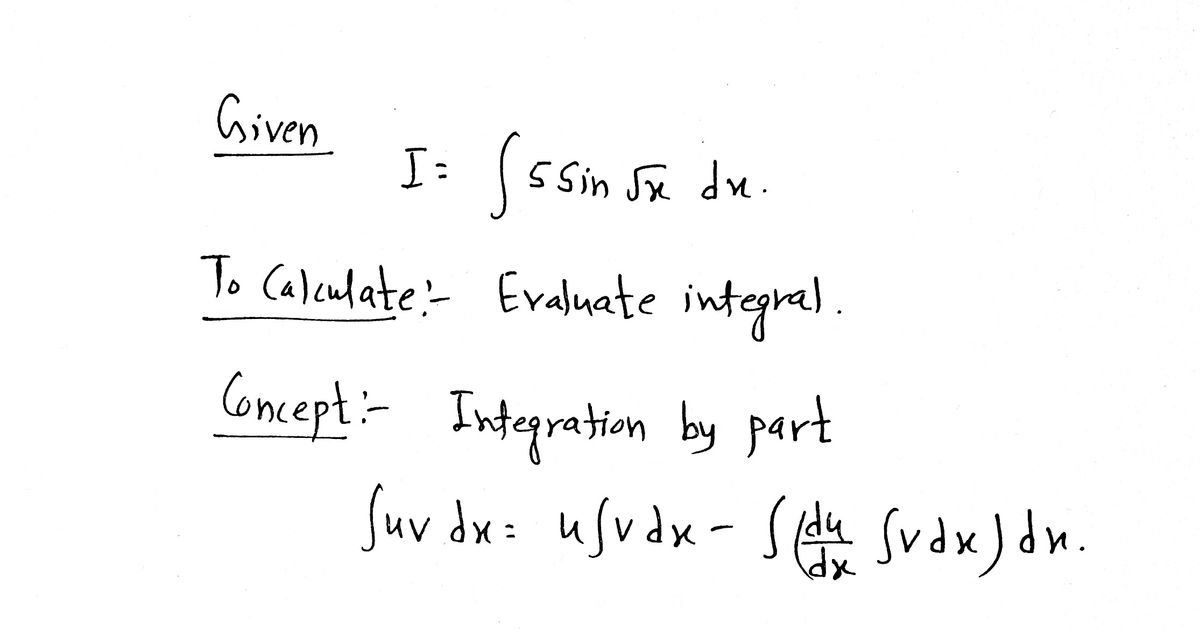 Given
I = ∫ 5 Sin √x dx.
To Calculate:- Evaluate integral.
Concept:- Integration by part
∫uv dx = u∫v dx - ∫(du/dx ∫v dx) dx.